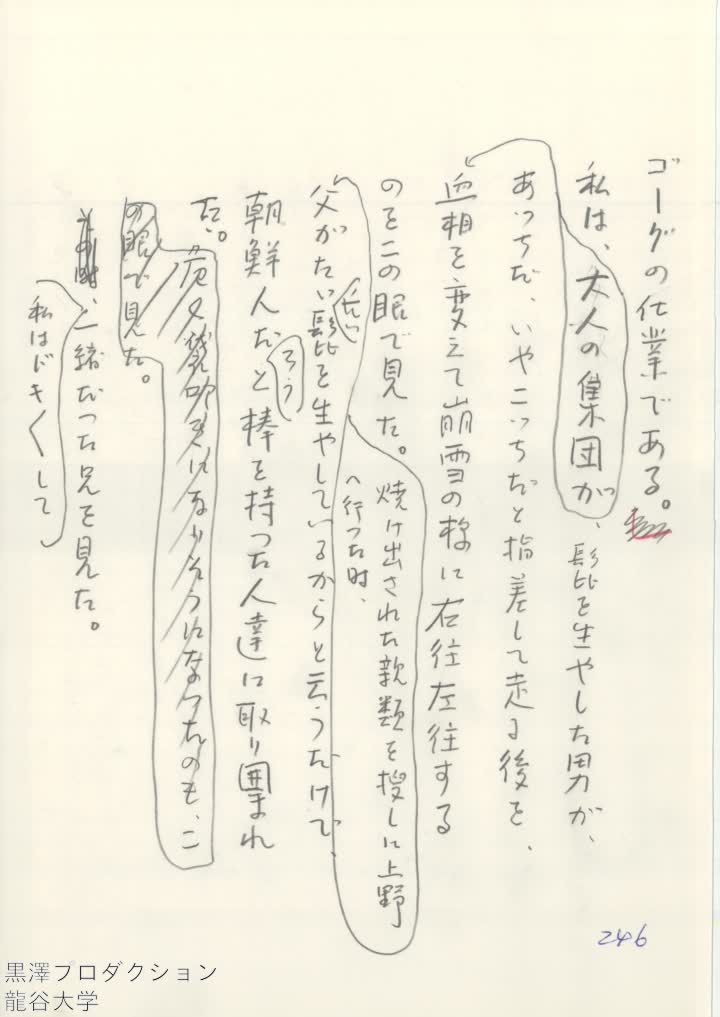 ゴーグの仕業である。
私は、大人の集団が、髭を生やした男が、
あっちだ、いやこっちだと指差して走る後を、
血相を変えて崩雪の様に右往左往する
のをこの眼で見た。焼け出された親類を捜しに上野
へ行った時、
父がたゞ長い髭を生やしているからと云うだけで、
朝鮮人だろうと棒を持った人達に取り囲まれ
た。
危く袋叩きになりそうになったのも、こ
の眼で見た。
、一緒だった兄を見た。
私はドキ〱して
246
黒澤プロダクション
龍谷大学